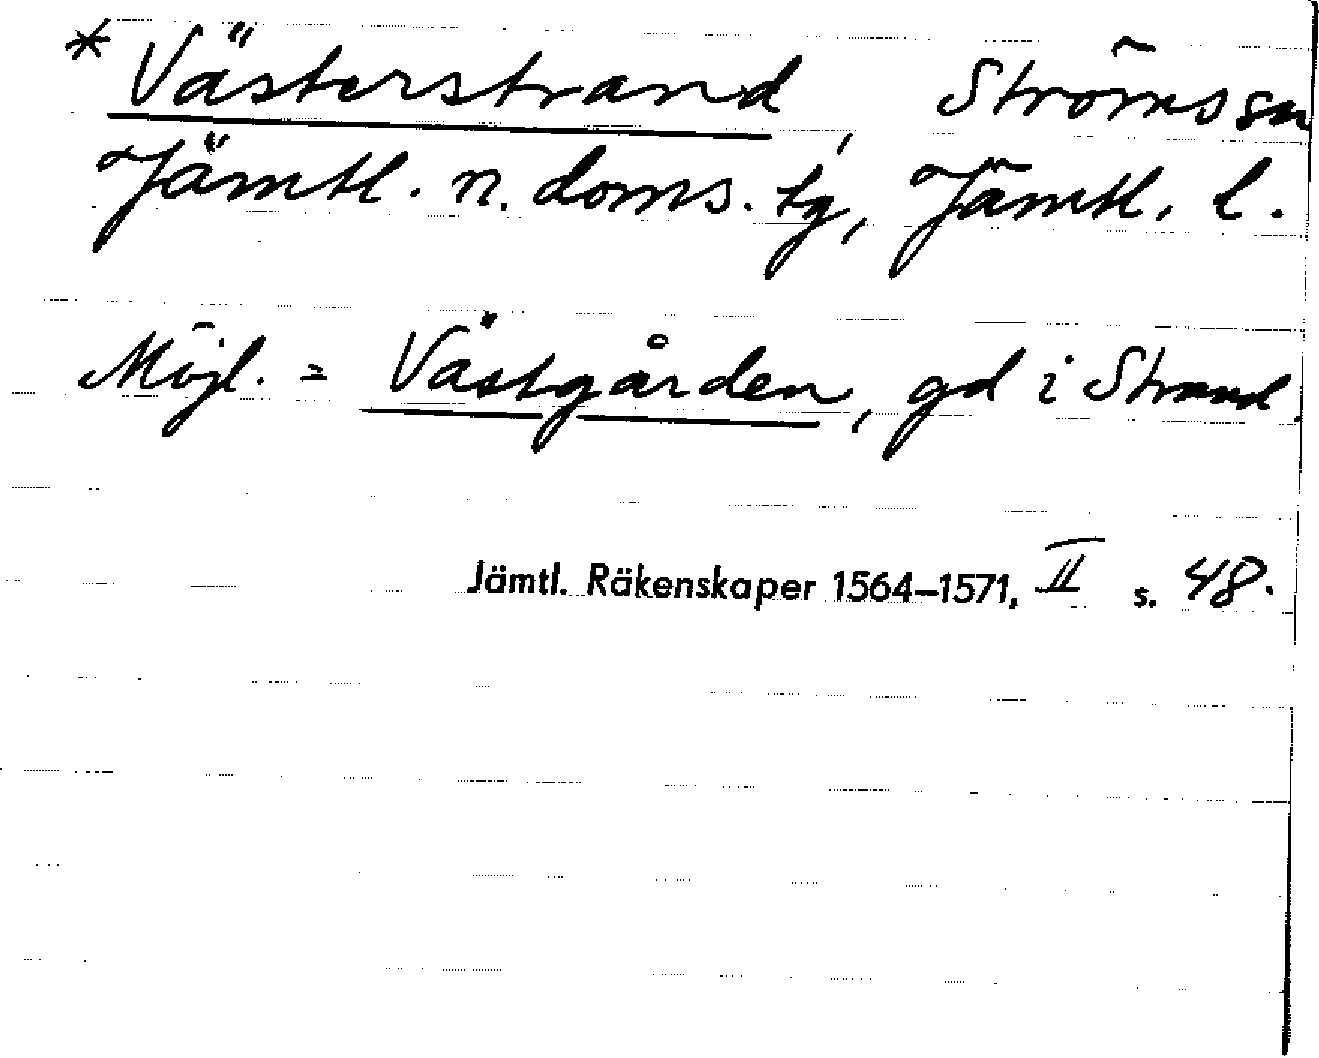 * Västerstrand, Ströms sn
Jämtl. n. doms. tg, Jämtl. l.
Möjl. = Västgården, gd i Strand.
Jämtl. Räkenskaper 1564–1571, II s. 48.